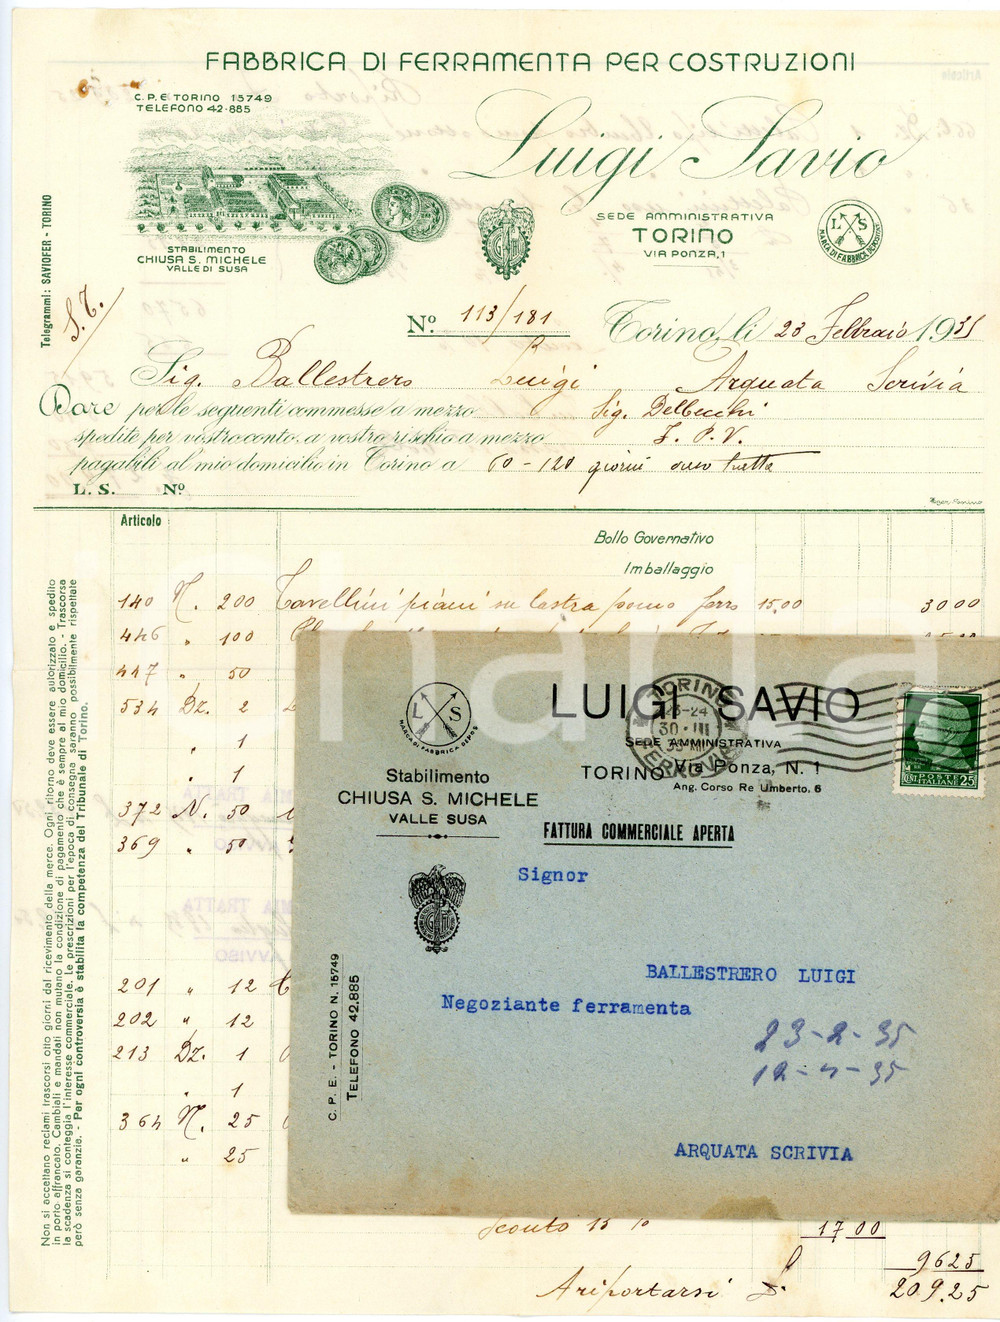 FABBRICA DI FERRAMENTA PER COSTRUZIONI
C.P.E. TORINO 15749
TELEFONO 42-885
Luigi Savio
STABILIMENTO
CHIUSA S. MICHELE
VALLE DI SUSA
SEDE AMMINISTRATIVA
TORINO
VIA PONZA, 1
L S
MARCA DI FABBRICA DEPOSITATA
Telegrammi: SAVIOFER - TORINO
S. T.
Nº 113/181
Torino, li 23 Febbraio 1935
Sig. Ballestrero Luigi Arquata Scrivia
Dare per le seguenti commesse a mezzo Sig. Delbecchi
spedite per vostro conto, a vostro rischio a mezzo F. P. V.
pagabili al mio domicilio in Torino a 60-120 giorni uso tratta
L. S. Nº
Articolo
Bollo Governativo
Imballaggio
140 N. 200 Tavellini piani su lastra pomo ferro 15,00 30 00
446 " 100
447 " 50
534 Dz. 2
" 1
" 1
372 N. 50
369 " 50
201 " 12
202 " 12
213 Dz. 1
" 1
364 N. 25
" 25
Sconto 15 % 17 00
96 25
A riportarsi £. 209.25
Non si accettano reclami trascorsi otto giorni dal ricevimento della merce. Ogni ritorno deve essere autorizzato e spedito
in porto affrancato. Cambiali e mandati non mutano la condizione di pagamento che è sempre al mio domicilio. - Trascorsa
la scadenza si conteggia l'interesse commerciale. Le prescrizioni per l'epoca di consegna saranno possibilmente rispettate
però senza garanzia. - Per ogni controversia è stabilita la competenza del Tribunale di Torino.
L S
MARCA DI FABBRICA DEPOS
LUIGI SAVIO
SEDE AMMINISTRATIVA
TORINO Via Ponza, N. 1
Ang. Corso Re Umberto, 6
Stabilimento
CHIUSA S. MICHELE
VALLE SUSA
FATTURA COMMERCIALE APERTA
TORINO
23-24
30 III
FERROVIA
POSTE ITALIANE
25
Signor
BALLESTRERO LUIGI
Negoziante ferramenta
23-2-35
12-4-35
ARQUATA SCRIVIA
C. P. E. - TORINO N. 15749
TELEFONO 42.885